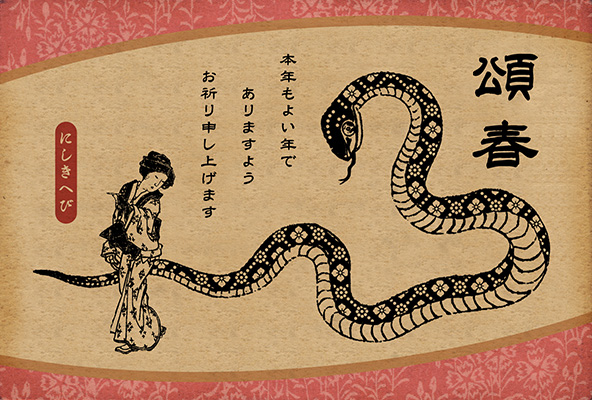 頌春
本年もよい年で
ありますよう
お祈り申し上げます
にしきへび